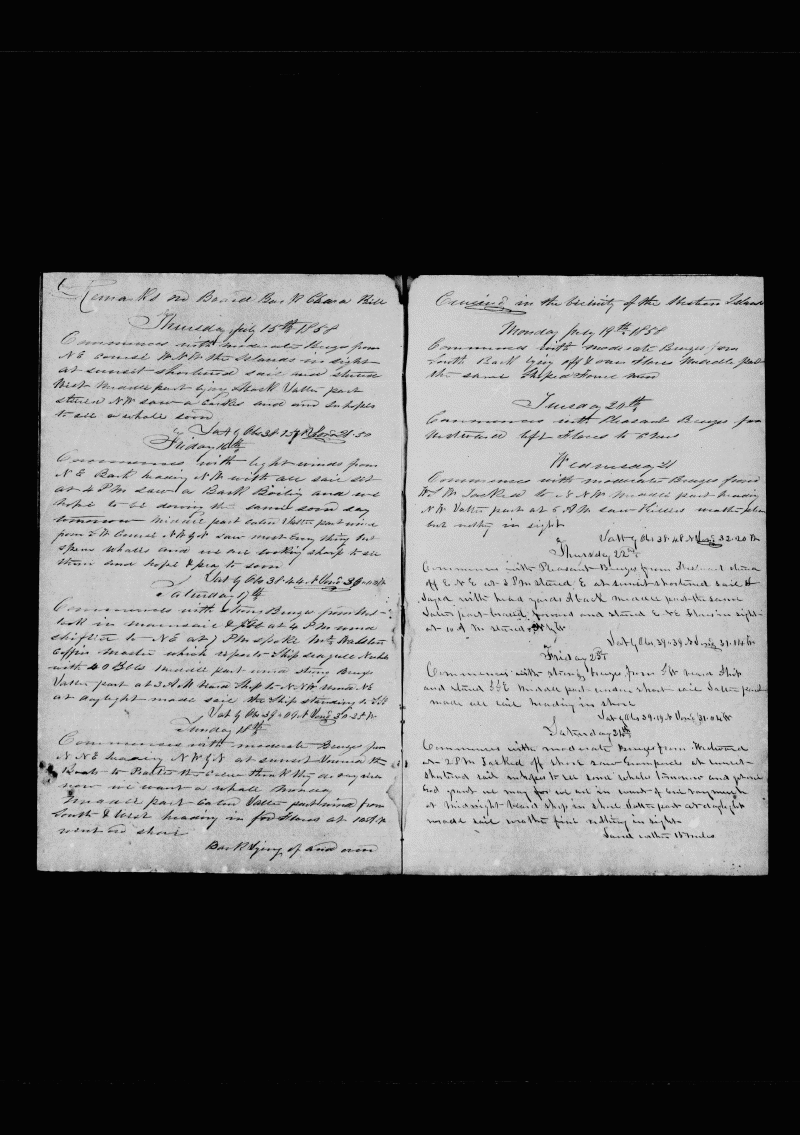 Remarks on Board Bark Clara Bell
Thursday July 15th 1858
Commences with moderate Breezes from
N E Course W N W the Islands in sight
at sunset shortened sail and stered
West middle part lying aback Latter part
stered N W saw a and in hopes
to see a whale soon
Lat by Obs 38.15 N Long 31.50
Friday 16th
Commences with light winds from
N E Bark heading N W with all sail set
at 4 P M saw a Bark Boiling and we
hope to be doing the same soon say
tomorrow middle part calm Latter part wind
from S W Course N W by N saw most any thing but
sperm whales and we are looking sharp to see
them and hope & pray to soon
Lat by Obs 38.44 N Long 30
Saturday 17th
Commences with strong Breezes from
took in mainsail & Jib at 4 P M wind
shifted to N E at 7 P M spoke
Coffin master which reports Ship Seagull
with 40 Bbls middle part wind strong Breezes
Latter part at 3 A M Ship to N N W wind N E
at daylight made sail the Ship standing to
Lat by Obs 39.09 N Long 30.25 W
Sunday 18th
Commences with moderate Breezes from
N N E heading N W by N at sunset the
Boats to the think they do any
now we want a whale Monday
Middle part Calm Latter part wind from
South & West heading in for Flores at 10 A M
went on shore
Bark lying of and onn
Cruising in the vicinity of the Western Islands
Monday July 19th 1858
Commences with moderate Breezes from
South Bark lying off & onn Flores Middle part
the same Shiped Four men
Tuesday 20th
Commences with Pleasant Breezes from
Westward left Flores
Wednesday 21
Commences with moderate Breezes from
W S W Tacked to N N W middle part heading
N W Latter part at 6 A M saw Killers weather
but nothing in sight
Latt by Obs 38.48 N Long 32.20 W
Thursday 22nd
Commences with Pleasant Breezes from stered
off E N E at 2 P M stered E at sunset shortened sail &
layed with head yards aback middle part the same
Latter part braced forward and stered E N E Flores in sight
at 10 A M stered
Lat by Obs 39.39 N Long 31.14 W
Friday 23rd
Commences with strong breezes from Ship
and stered middle part under short sail Latter part
made all sail heading in shore
Lat by Obs 39.19 N Long 31.04 W
Saturday 24th
Commences with moderate Breezes from Westward
at 2 P M Tacked off shore saw at sunset
shortened sail in hopes to see some whales tomorrow and
God grant we may for we are in want of oil very much
at Midnight heard ship in shore Latter part at daylight
made sail weather fine nothing in sight
Land miles